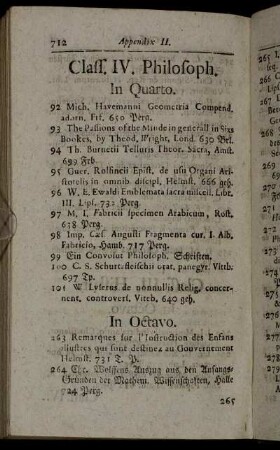 712 Appendix II.
Class. IV. Philosoph.
In Quarto.
92 Mich. Havemanni Geometria Compend.
adorn. Frf. 650 Perg.
93 The Passions of the Minde in generall in Sixs
Bookes, by Theod, Wright, Lond. 630 Bel.
94 Th. Burnetii Telluris Theor. Sacra, Amst.
699 Frb
95 Guer. Rolfincii Epist. de usu Organi Ari-
stotelis in omnib. discipl, Helmst. 666 geh.
96 W. E. Ewald: Emblemata sacra miscel. Libr.
III. Lips. 732. Perg.
97 M. I. Fabricii specimen Arabicum, Rost.
638 Perg.
98 Imp. Cæs. Augusti Fragmenta cur. I. Alb.
Fabricio, Hamb. 717 Perg.
99 Ein Convolut Philosoph. Schriften.
100 C. S. Schurtzfleischii orat. panegyr. Vitth.
697 Tp.
101 W Lyserus de nonnullis Relig. concer-
nent, controvers. Viteb, 640 geh.
In Octavo.
263 Remarques sur l'Instruction des Enfans
illustres qui sont destinez au Gouvernement
Helmst. 731 T. P.
264 Chr. Wolffens Auszug aus, den Anfangs-
Gründen der Mathem. Wissenschaften, Halle
724 Perg.
265